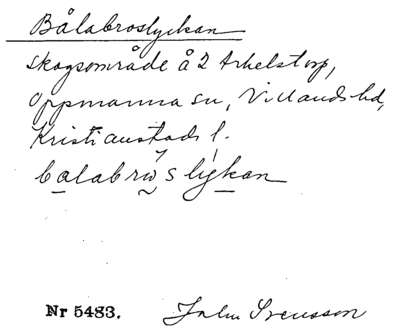 Bålabroslyckan
skogsområde å 2 Arkelstorp,
Oppmanna sn, Villands hd,
Kristianstads l.
balabrωslykan
Nr 5483. John Svensson